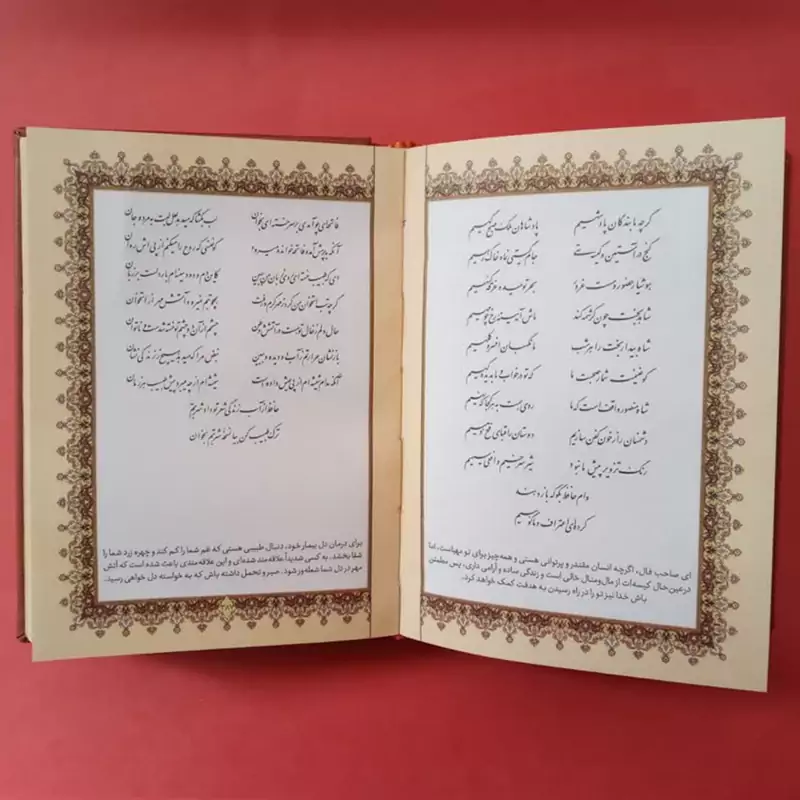 گرچه ما بندگان پادشهیم پادشاهان ملک صبحگهیم
گنج در آستین و کیسه تهی جام گیتی نما و خاک رهیم
هوشیار حضور و مست غرور بحر توحید و غرقه گنهیم
شاهد بخت چون کرشمه کند ماش آیینه رخ چو مهیم
شاه بیدار بخت را هر شب ما نگهبان افسر و کلهیم
گو غنیمت شمار صحبت ما که تو در خواب و ما به دیده گهیم
شاه منصور واقف است که ما روی همت به هر کجا که نهیم
دشمنان را ز خون کفن سازیم دوستان را قبای فتح دهیم
رنگ تزویر پیش ما نبود شیر سرخیم و افعی سیهیم
وام حافظ بگو که باز دهند
کرده‌ای اعتراف و ما گوهیم
ای صاحب فال، اگرچه انسان مقتدر و پرتوانی هستی و همه‌چیز برای تو مهیاست، اما
درعین‌حال کیسه‌ات از مال‌ومنال خالی است و زندگی ساده و آرامی داری، پس مطمئن
باش خدا نیز تو را در راه رسیدن به هدفت کمک خواهد کرد.
فاتحه‌ای چو آمدی بر سر خسته‌ای بخوان لب بگشا که می‌دهد لعل لبت به مرده جان
آنکه به پرسش آمد و فاتحه خواند و می‌رود گو نفسی که روح را می‌کنم از پی اش روان
ای که طبیب خسته‌ای روی زبان من ببین کاین دم و دود سینه‌ام بار دل است بر زبان
گرچه تب استخوان من کرد ز مهر گرم و رفت همچو تبم نمی‌رود آتش مهر از استخوان
حال دلم ز خال تو هست در آتشش وطن چشمم از آن دو چشم تو خسته شده‌ست و ناتوان
باز نشان حرارتم ز آب دو دیده و ببین نبض مرا که می‌دهد هیچ ز زندگی نشان
آنکه مدام شیشه‌ام از پی عیش داده است شیشه‌ام از چه می‌برد پیش طبیب هر زمان
حافظ از آب زندگی شعر تو داد شربتم
ترک طبیب کن بیا نسخه شربتم بخوان
برای درمان دل بیمار خود، دنبال طبیبی هستی که غم شما را کم کند و چهره زرد شما را
شفا بخشد. به کسی شدیداً علاقه‌مند شده‌ای و این علاقه‌مندی باعث شده است که آتش
مهر در دل شما شعله‌ور شود. صبر و تحمل داشته باش که به خواسته دل خواهی رسید.